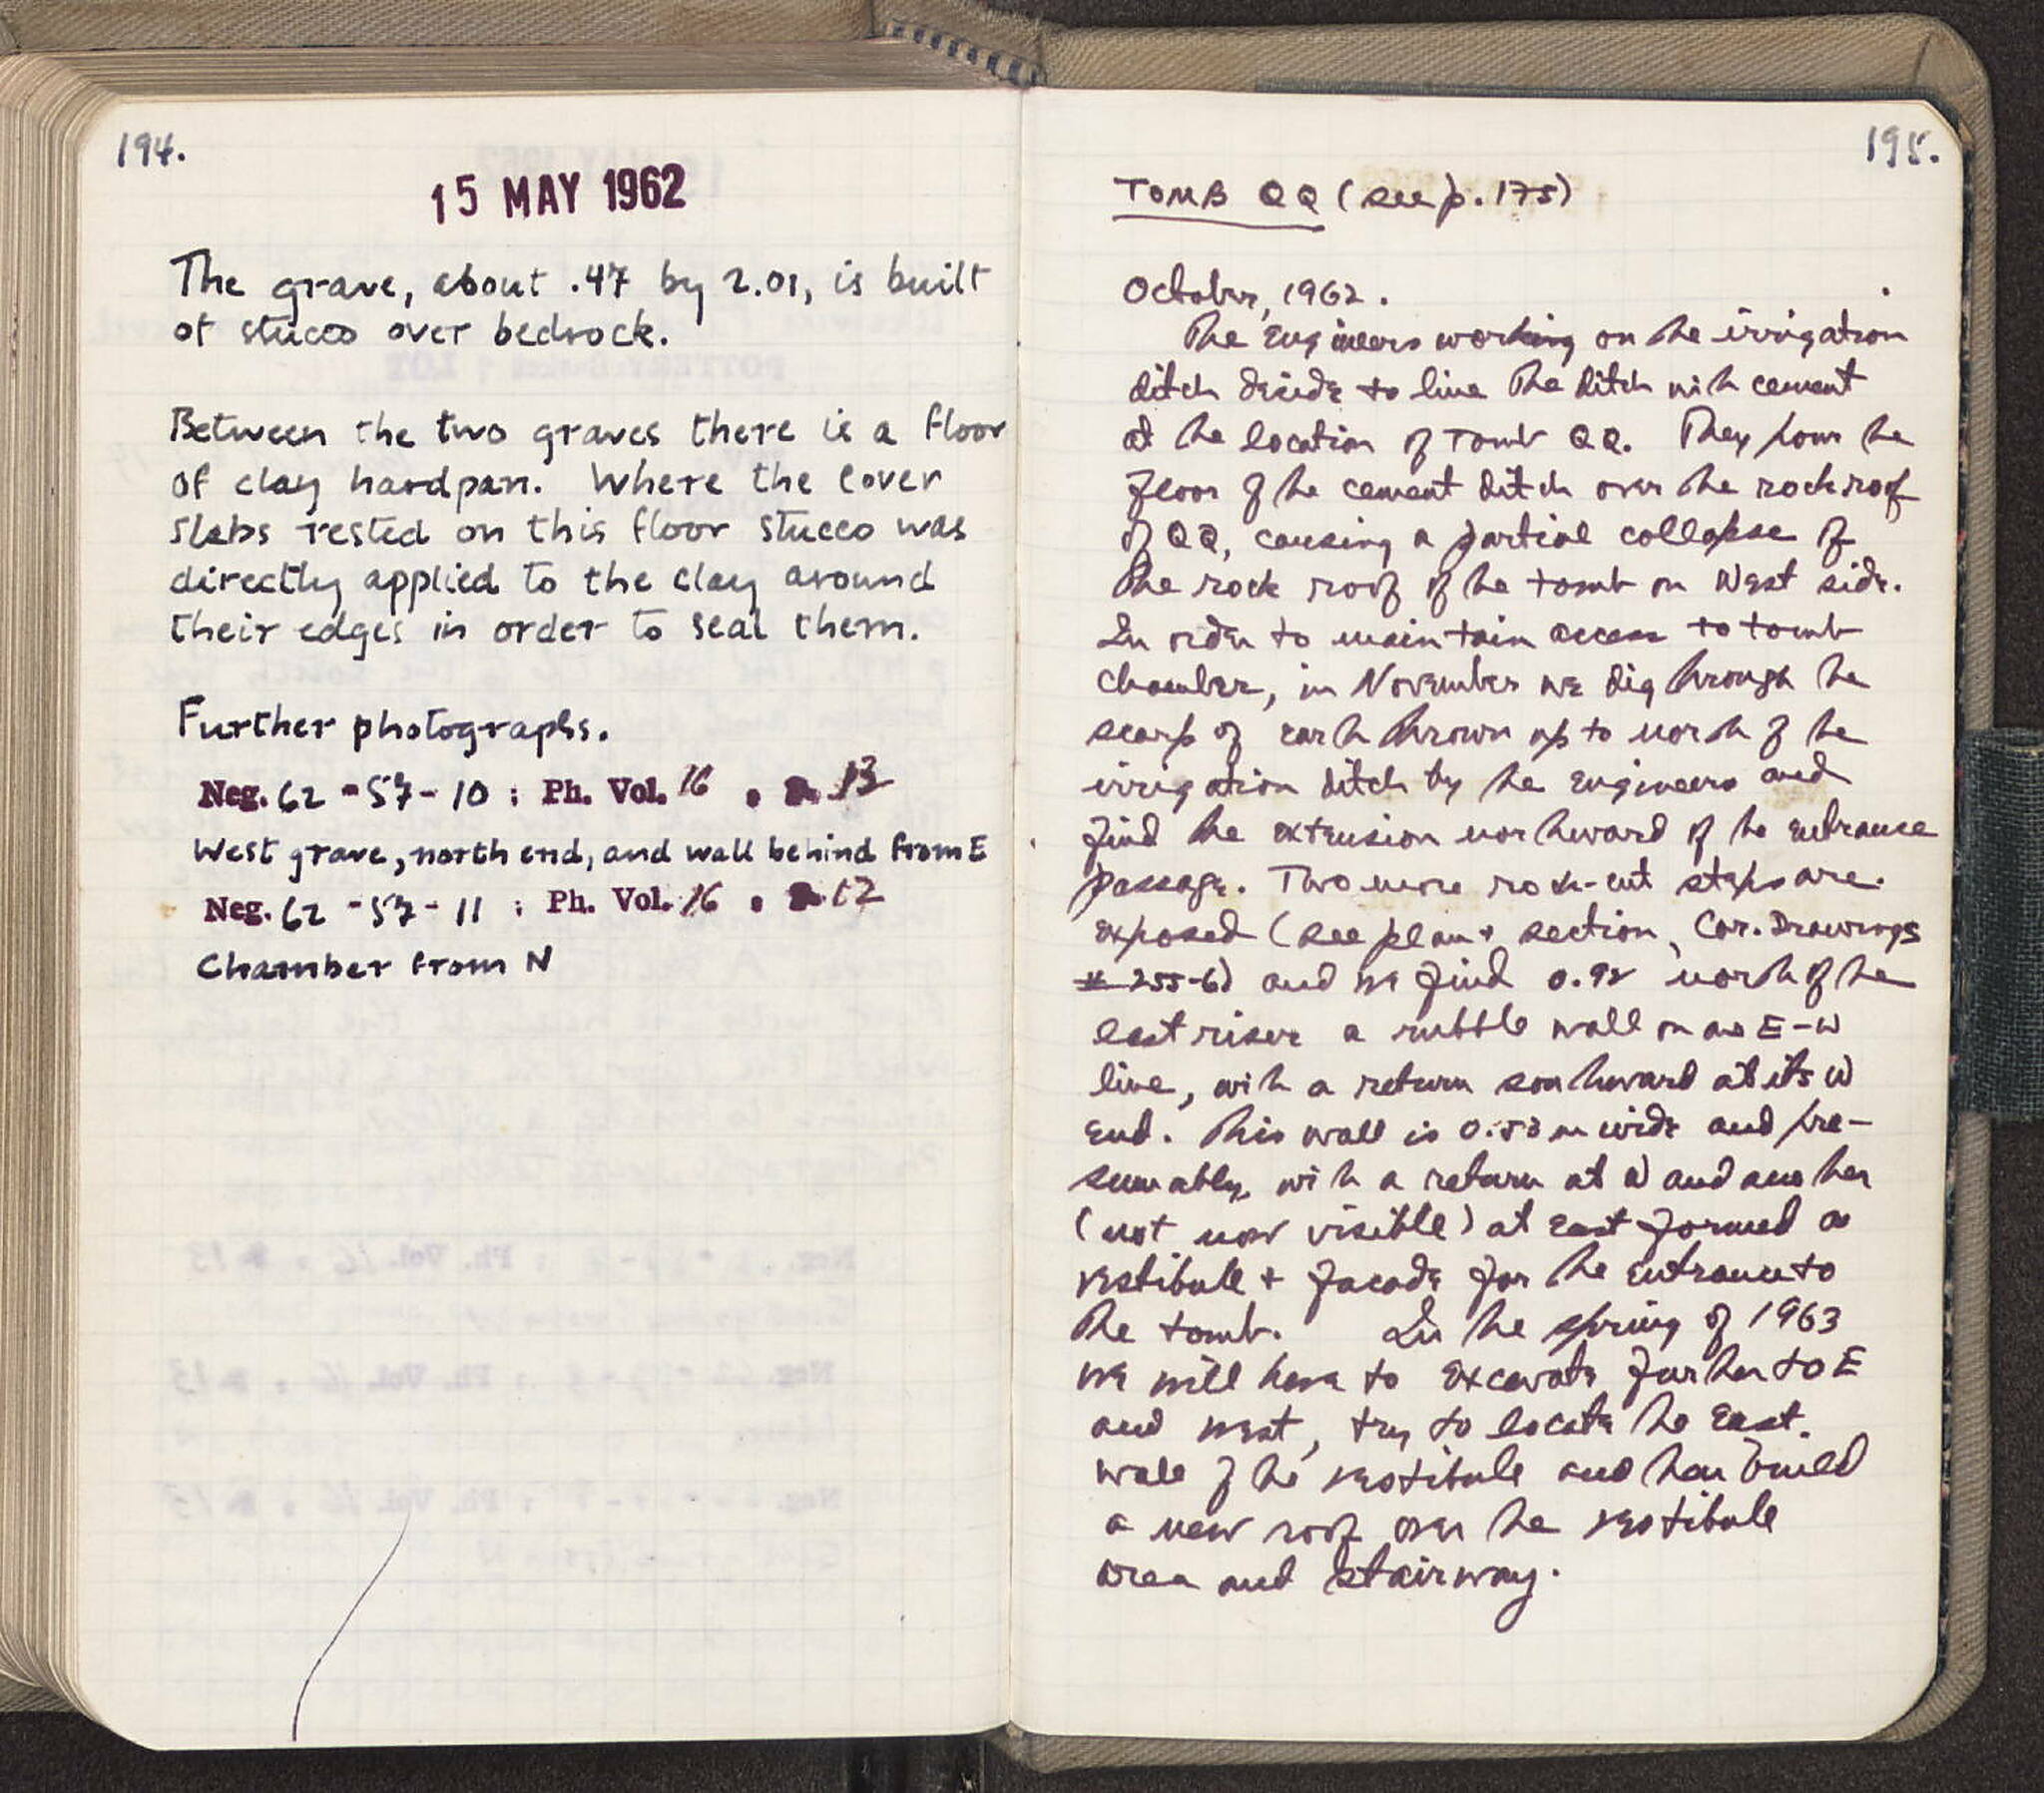 194.
15 MAY 1962
The grave, about .47 by 2.01, is built
of stucco over bedrock.
Between the two graves there is a floor
of clay hardpan. Where the cover
slabs rested on this floor stucco was
directly applied to the clay around
their edges in order to seal them.
Further photographs.
Neg. 62 - 57 - 10 ; Ph. Vol. 16 . 13
West grave, north end, and wall behind from E
Neg. 62 - 57 - 11 ; Ph. Vol. 16 . 12
Chamber from N
195.
TOMB QQ (see p. 175)
October, 1962.
The Engineers working on the irrigation
ditch decide to line the ditch with cement
at the location of Tomb QQ. They pour the
floor of the cement ditch over the rock roof
of QQ, causing a partial collapse of
the rock roof of the tomb on West side.
In order to maintain access to tomb
chamber, in November we dig through the
scarp of earth thrown up to north of the
irrigation ditch by the Engineers and
find the extension northward of the entrance
passage. Two more rock-cut steps are
exposed (see plan + section, Cor. Drawings
# 255-6) and we find 0.92 north of the
last riser a rubble wall on an E-W
line, with a return southward at its W
end. This wall is 0.53 m wide and pre-
sumably, with a return at W and another
(not now visible) at East formed a
vestibule + facade for the entrance to
the tomb. In the spring of 1963
we will have to excavate further to E
and west, try to locate the East
wall of the vestibule and then build
a new roof over the vestibule
area and stairway.